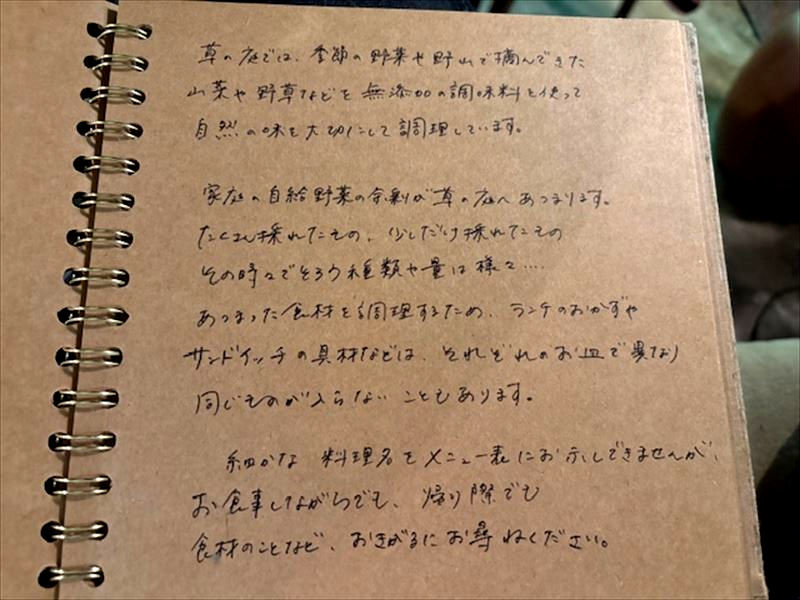 草の庭では、季節の野菜や野山で摘んできた
山菜や野草などを無添加の調味料を使って
自然の味を大切にして調理しています。
家庭の自給野菜の余剰が草の庭へあつまります。
たくさん採れたもの、少しだけ採れたもの
その時々でそろう種類や量は様々....
あつまった食材を調理するため、ランチのおかずや
サンドイッチの具材などは、それぞれのお皿で異なり
同じものが入らないこともあります。
細かな料理名をメニュー表にお示しできませんが、
お食事しながらでも、帰り際でも
食材のことなど、おきがるにお尋ねください。